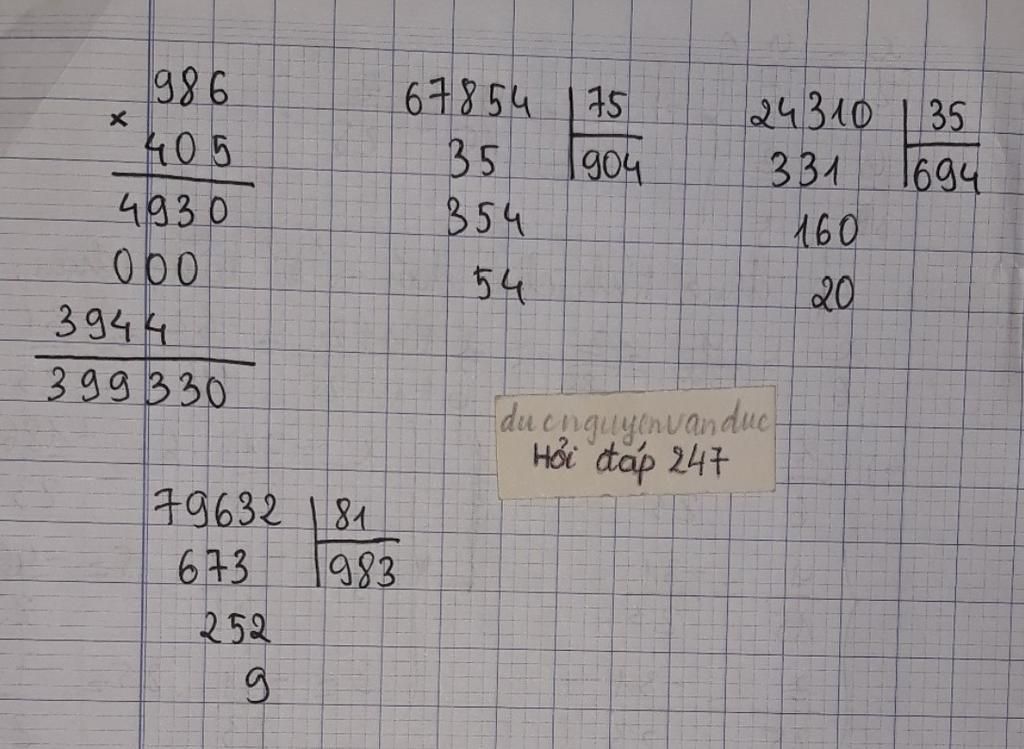 986
×
405
4930
000
3944
399330
67854 75
35 904
354
54
24310 35
331 694
160
20
ducnguyenvanduc
Hỏi đáp 247
79632 81
673 983
252
9